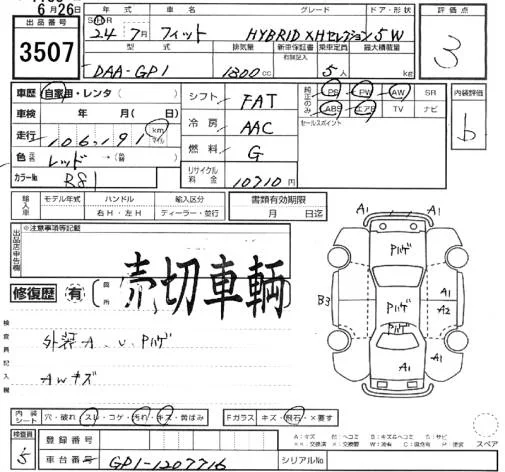 6月26日
出品番号 3507
年式 車名 グレード ドア・形状
24年 7月 フィット HYBRID XHセレクション 5W
型式 排気量 新車保証書 乗車定員 最大積載量
有(記録)無
DAA-GP1 1300cc 5人 kg
評価点 3
車歴 自家用・レンタ( )
車検 年 月( 日)
走行 106,191 km マイル
色 元色 レッド →(替 )
カラーNo R81
シフト FAT
冷房 AAC
燃料 G
リサイクル料金 10710円
純正のみ PS PW AW SR
ABS エアB TV ナビ
セールスポイント
内装評価 b
輸入車 モデル年式 ハンドル 輸入区分
右H・左H ディーラー・並行
書類有効期限
月 日迄
出品店申告欄 ※注意事項等記載
修復歴 有 箇所
売切車輌
検査員記入欄
外装A、U、Pハゲ
AWキズ
A1 A1
Pハゲ
A1
B3 Pハゲ A2
Pハゲ
A1
内装シート 穴・破れ スレ・コゲ・汚れ・キズ・黄ばみ
Fガラス キズ・飛石・×要す
検査員 5
登録番号
車台番号 GP1-1207716
シリアルNo
A:キズ E:ヘコミ B:キズ&ヘコミ S:サビ
スペア